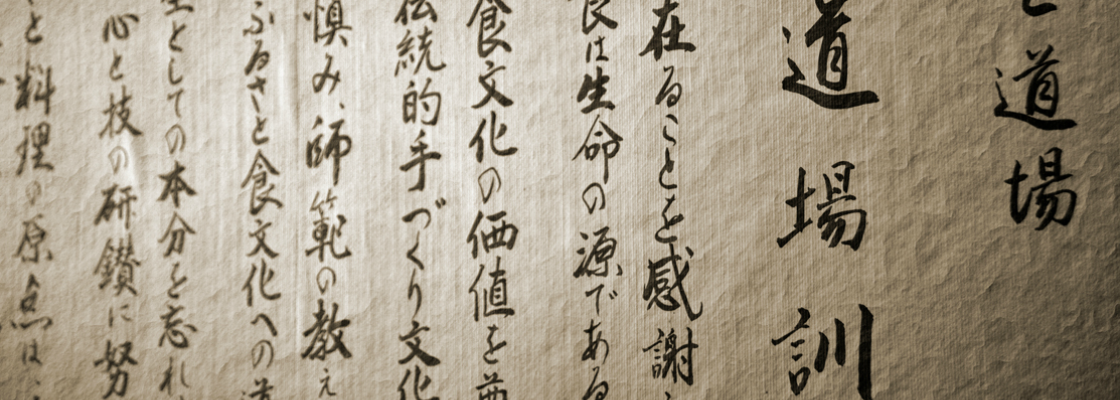 道場
道場訓
在ることを感謝
は生命の源である
食文化の価値を
伝統的手づくり文化
慎み、師範の教え
ふるさと食文化への道
としての本分を忘れ
心と技の研鑽に努
と料理の原点は